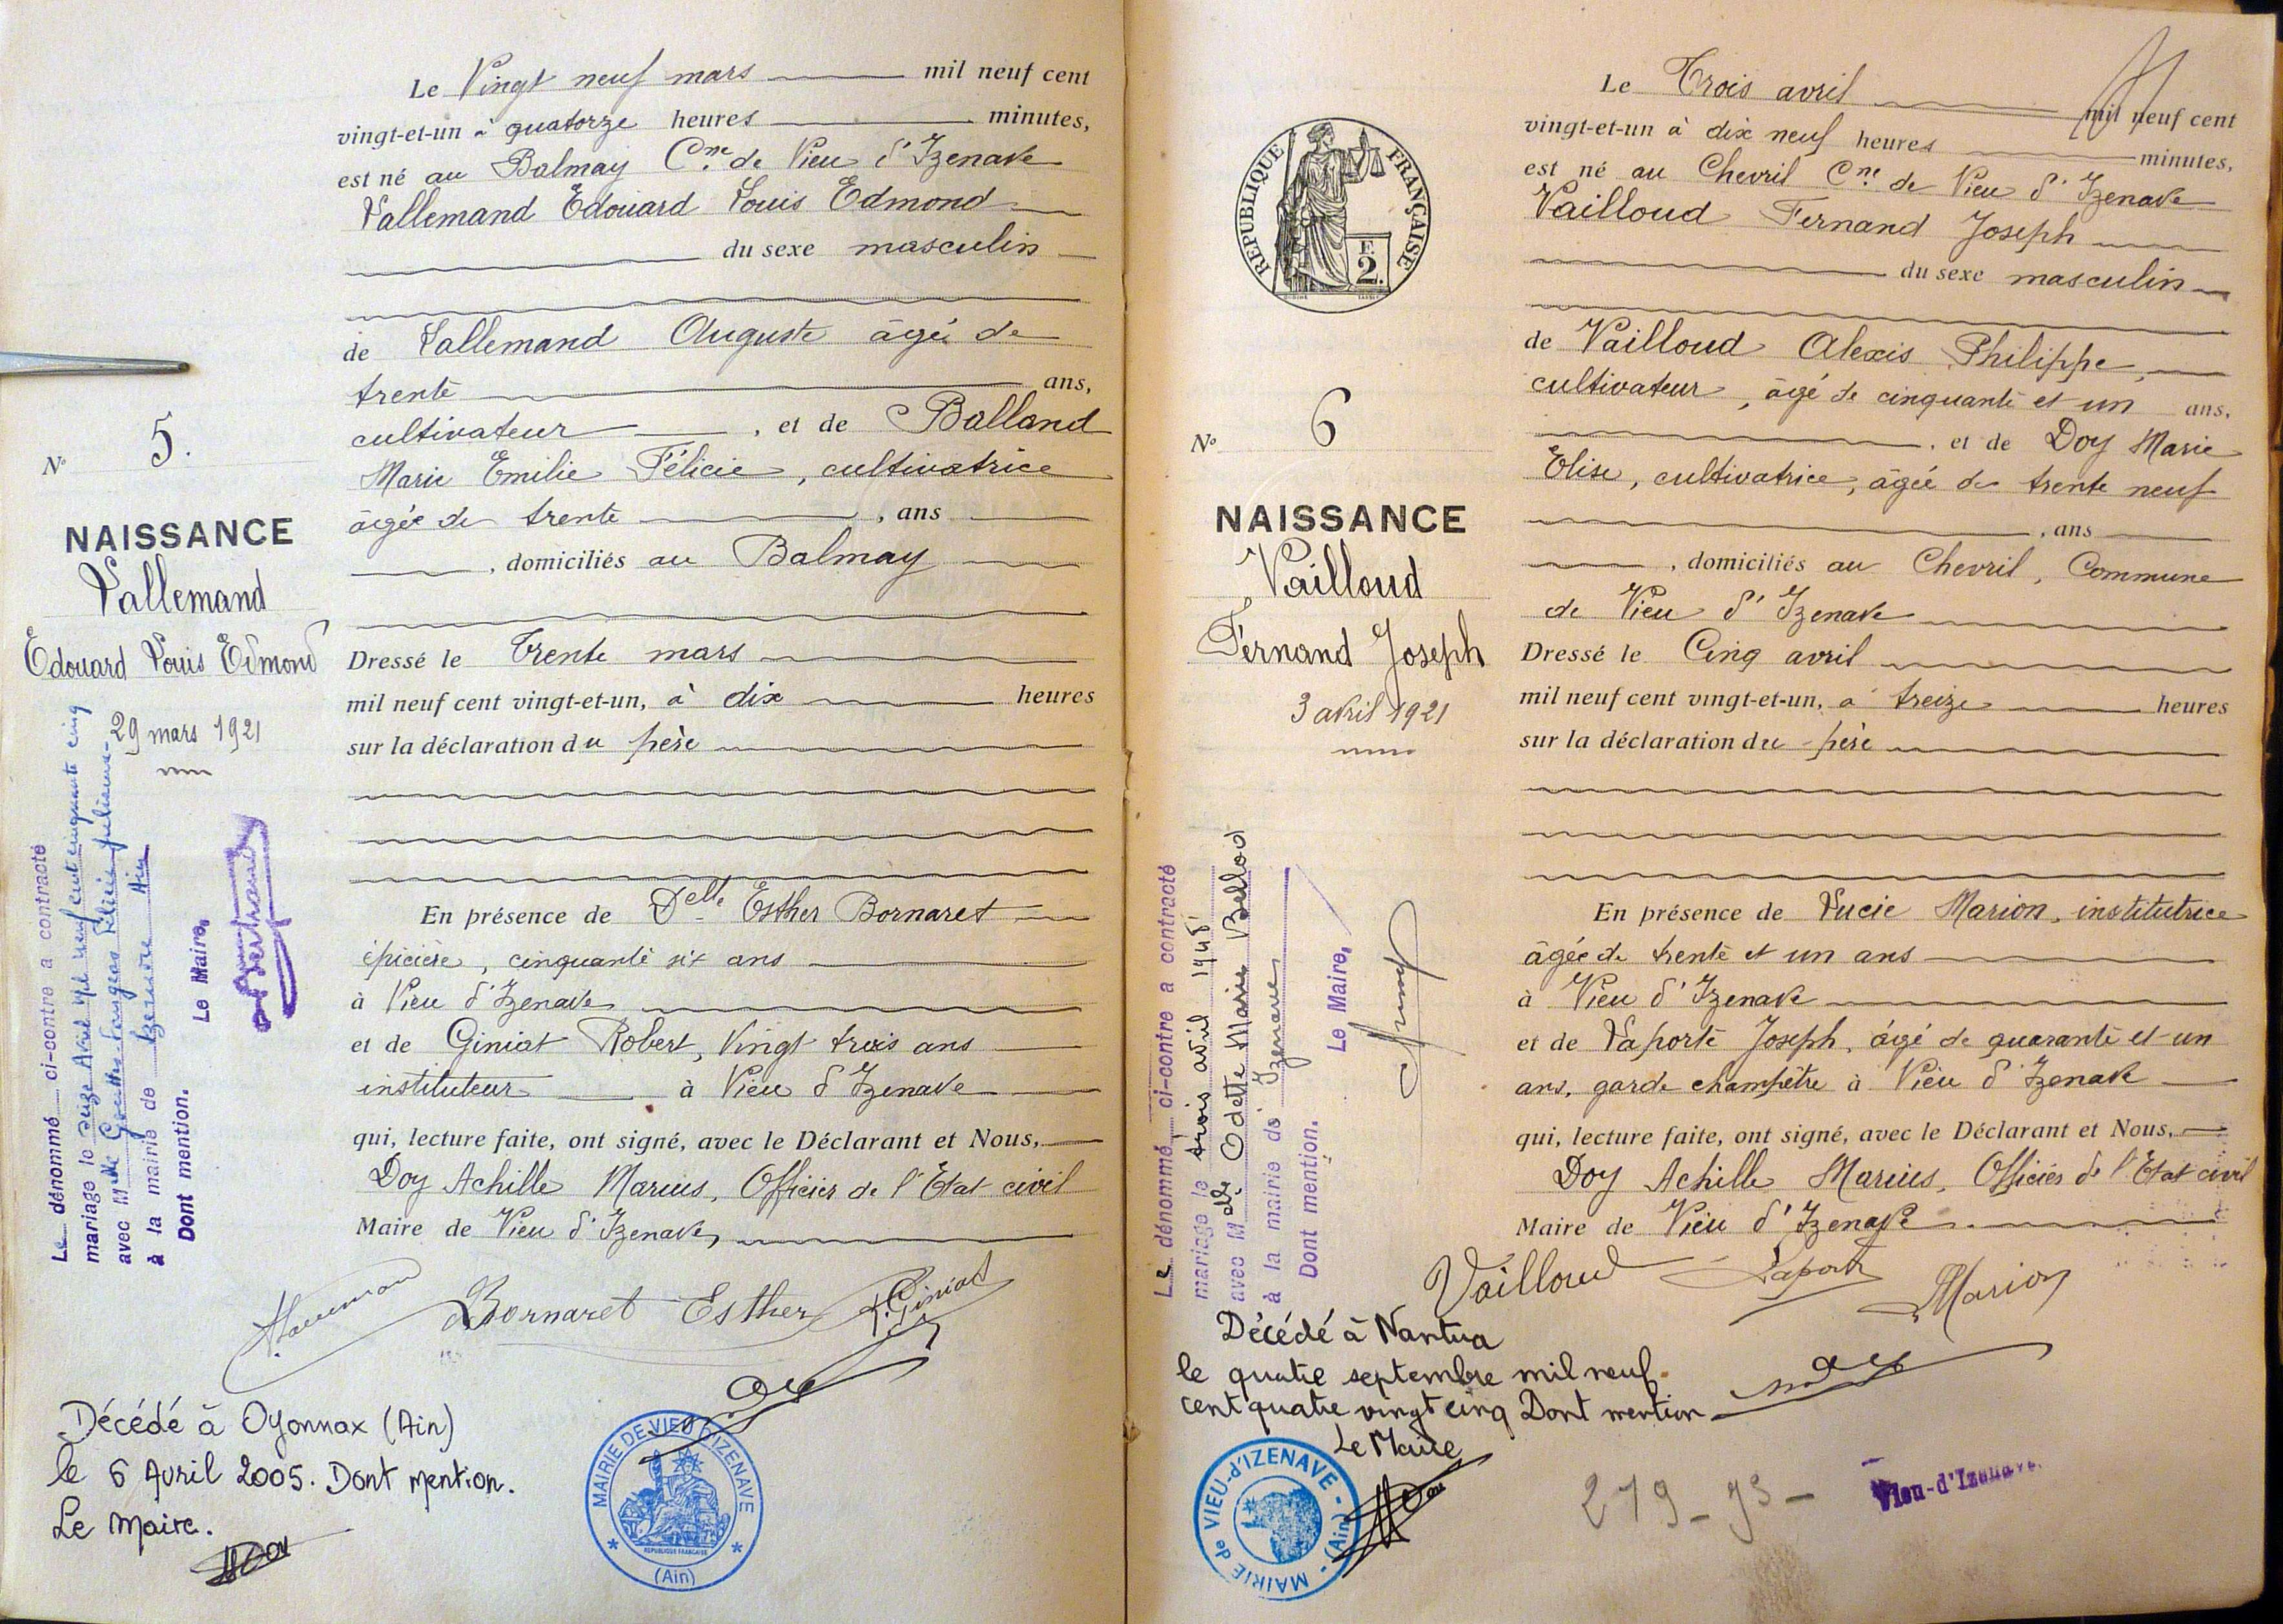 Le Vingt neuf mars mil neuf cent
vingt-et-un à quatorze heures minutes,
est né au Balmay Cne de Vieu d'Izenave
Lallemand Edouard Louis Edmond
du sexe masculin
de Lallemand Auguste âgé de
trente ans,
cultivateur, et de Balland
Marie Emilie Félicie, cultivatrice
âgée de trente, ans
, domiciliés au Balmay
Dressé le Trente mars
mil neuf cent vingt-et-un, à dix heures
sur la déclaration du père
En présence de Delle Esther Bornaret
épicière, cinquante six ans
à Vieu d'Izenave
et de Giniat Robert, Vingt trois ans
instituteur à Vieu d'Izenave
qui, lecture faite, ont signé, avec le Déclarant et Nous,
Doy Achille Marius, Officier de l'Etat civil
Maire de Vieu d'Izenave,
Bornaret Esther R. Giniat
Doy
N° 5.
NAISSANCE
Lallemand
Edouard Louis Edmond
29 mars 1921
Le dénommé ci-contre a contracté
mariage le seize Avril mil neuf cent cinquante cinq
avec Melle Félicie Juliana
à la mairie de Izenave Ain
Dont mention.
Le Maire,
Décédé à Oyonnax (Ain)
le 6 Avril 2005. Dont mention.
Le Maire.
MAIRIE DE VIEU D'IZENAVE
REPUBLIQUE FRANCAISE
(Ain)
Le Trois avril mil neuf cent
vingt-et-un à dix neuf heures minutes,
est né au Chevril Cne de Vieu d'Izenave
Vailloud Fernand Joseph
du sexe masculin
de Vailloud Alexis Philippe,
cultivateur, âgé de cinquante et un ans,
, et de Doy Marie
Elise, cultivatrice, âgée de trente neuf
, ans
, domiciliés au Chevril, Commune
de Vieu d'Izenave
Dressé le Cinq avril
mil neuf cent vingt-et-un, à treize heures
sur la déclaration du père
En présence de Lucie Marion, institutrice
âgée de trente et un ans
à Vieu d'Izenave
et de Laporte Joseph, âgé de quarante et un
ans, garde champêtre à Vieu d'Izenave
qui, lecture faite, ont signé, avec le Déclarant et Nous,
Doy Achille Marius, Officier de l'Etat civil
Maire de Vieu d'Izenave
Vailloud Laporte Marion
Doy
REPUBLIQUE FRANÇAISE
F.
2.
N° 6
NAISSANCE
Vailloud
Fernand Joseph
3 avril 1921
Le dénommé ci-contre a contracté
mariage le trois avril 1948
avec Melle Odette Marie Bellod
à la mairie de Izenave
Dont mention.
Le Maire,
Décédé à Nantua
le quatre septembre mil neuf
cent quatre vingt cinq Dont mention
Le Maire
MAIRIE de VIEU-d'IZENAVE - (Ain) -
Vieu-d'Izenave